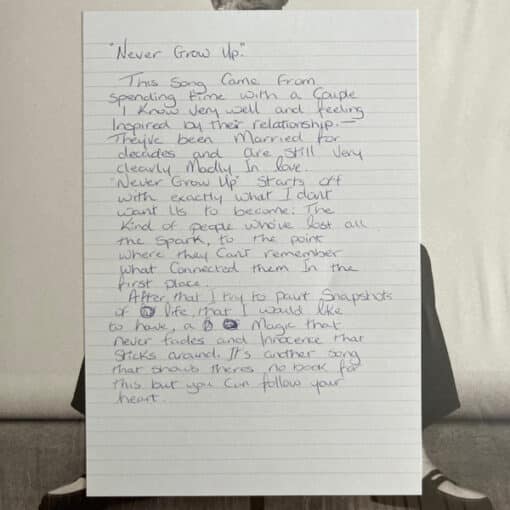 "Never Grow Up."
This Song Came From
Spending time with a Couple
I Know very well and feeling
Inspired by their relationship.—
They've been Married for
decades and are still very
clearly Madly In love.
"Never Grow Up" Starts off
with exactly what I don't
want Us to become: The
Kind of people who've lost all
the Spark, to the point
where they Can't remember
what Connected them In the
first place.
After that I try to paint Snapshots
of life, that I would like
to have, a Magic that
never fades and Innocence that
Sticks around. It's another song
that shows theres no book for
this but you Can follow your
heart.